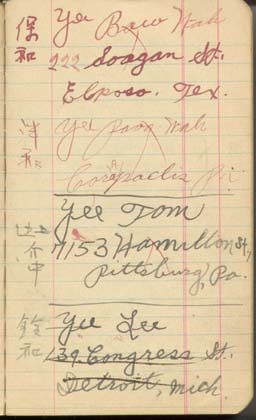 保和
Yee Baw Wah
222 Soagan St.
Elposo. Tex.
Yee Wah
Yee Tom
7153 Hamilton St,
Pittsburg, Pa.
和
Yee Lee
139 Congress St.
Detroit, Mich